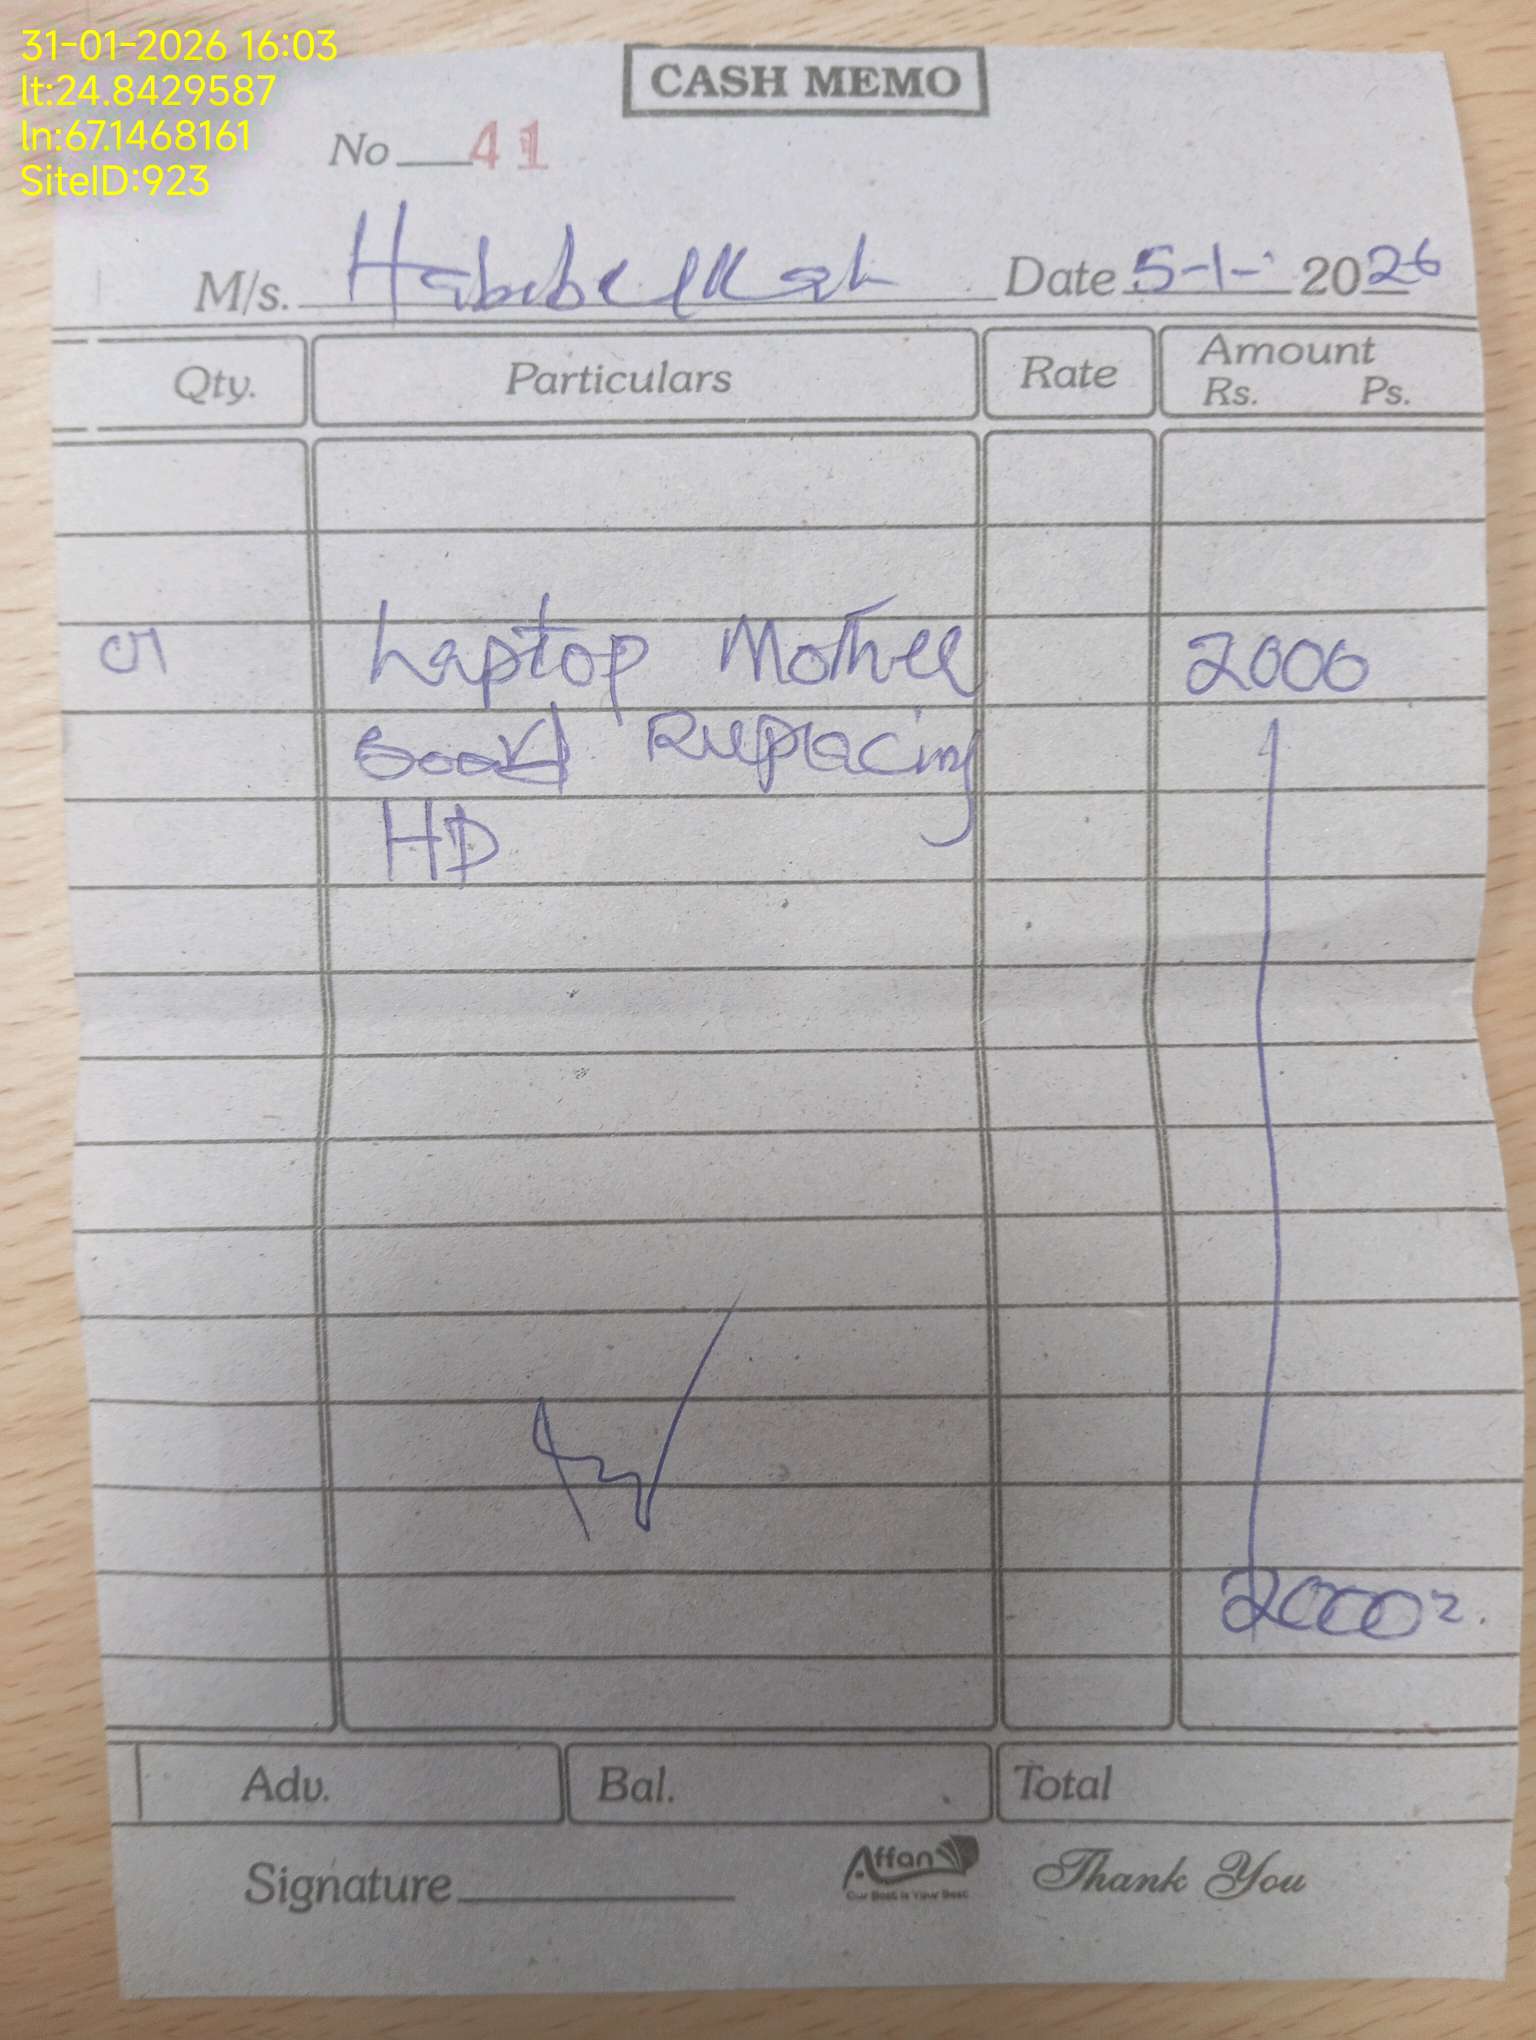 31-01-2026 16:03
lt:24.8429587
ln:67.1468161
SiteID:923
CASH MEMO
No 41
M/s. Habibullah Date 5-1- 2026
Qty. Particulars Rate Amount
Rs. Ps.
01 Laptop Mother 2000
Board Replacing
HD
2000
Adv. Bal. Total
Signature Affan Thank You
Our Best is Your Best